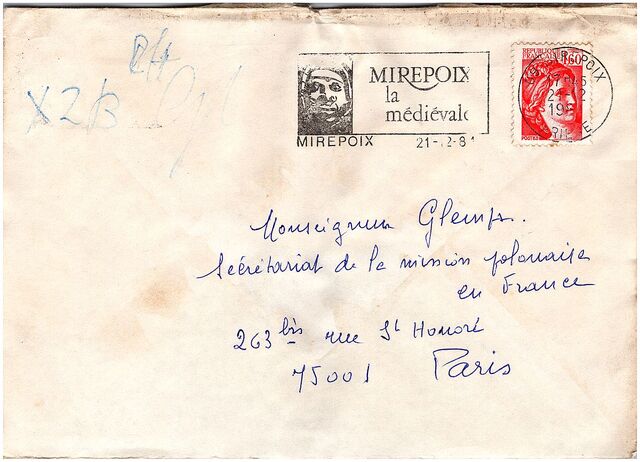 Rff
X2B
MIREPOIX
la
médiévale
MIREPOIX 21-12-81
RÉPUBLIQUE
FRANÇAISE 1,60
MIREPOIX
21-12
ARIEGE
Monseigneur Glemp.
Secrétariat de la mission polonaise
en France
263 bis rue St Honoré
75001 Paris